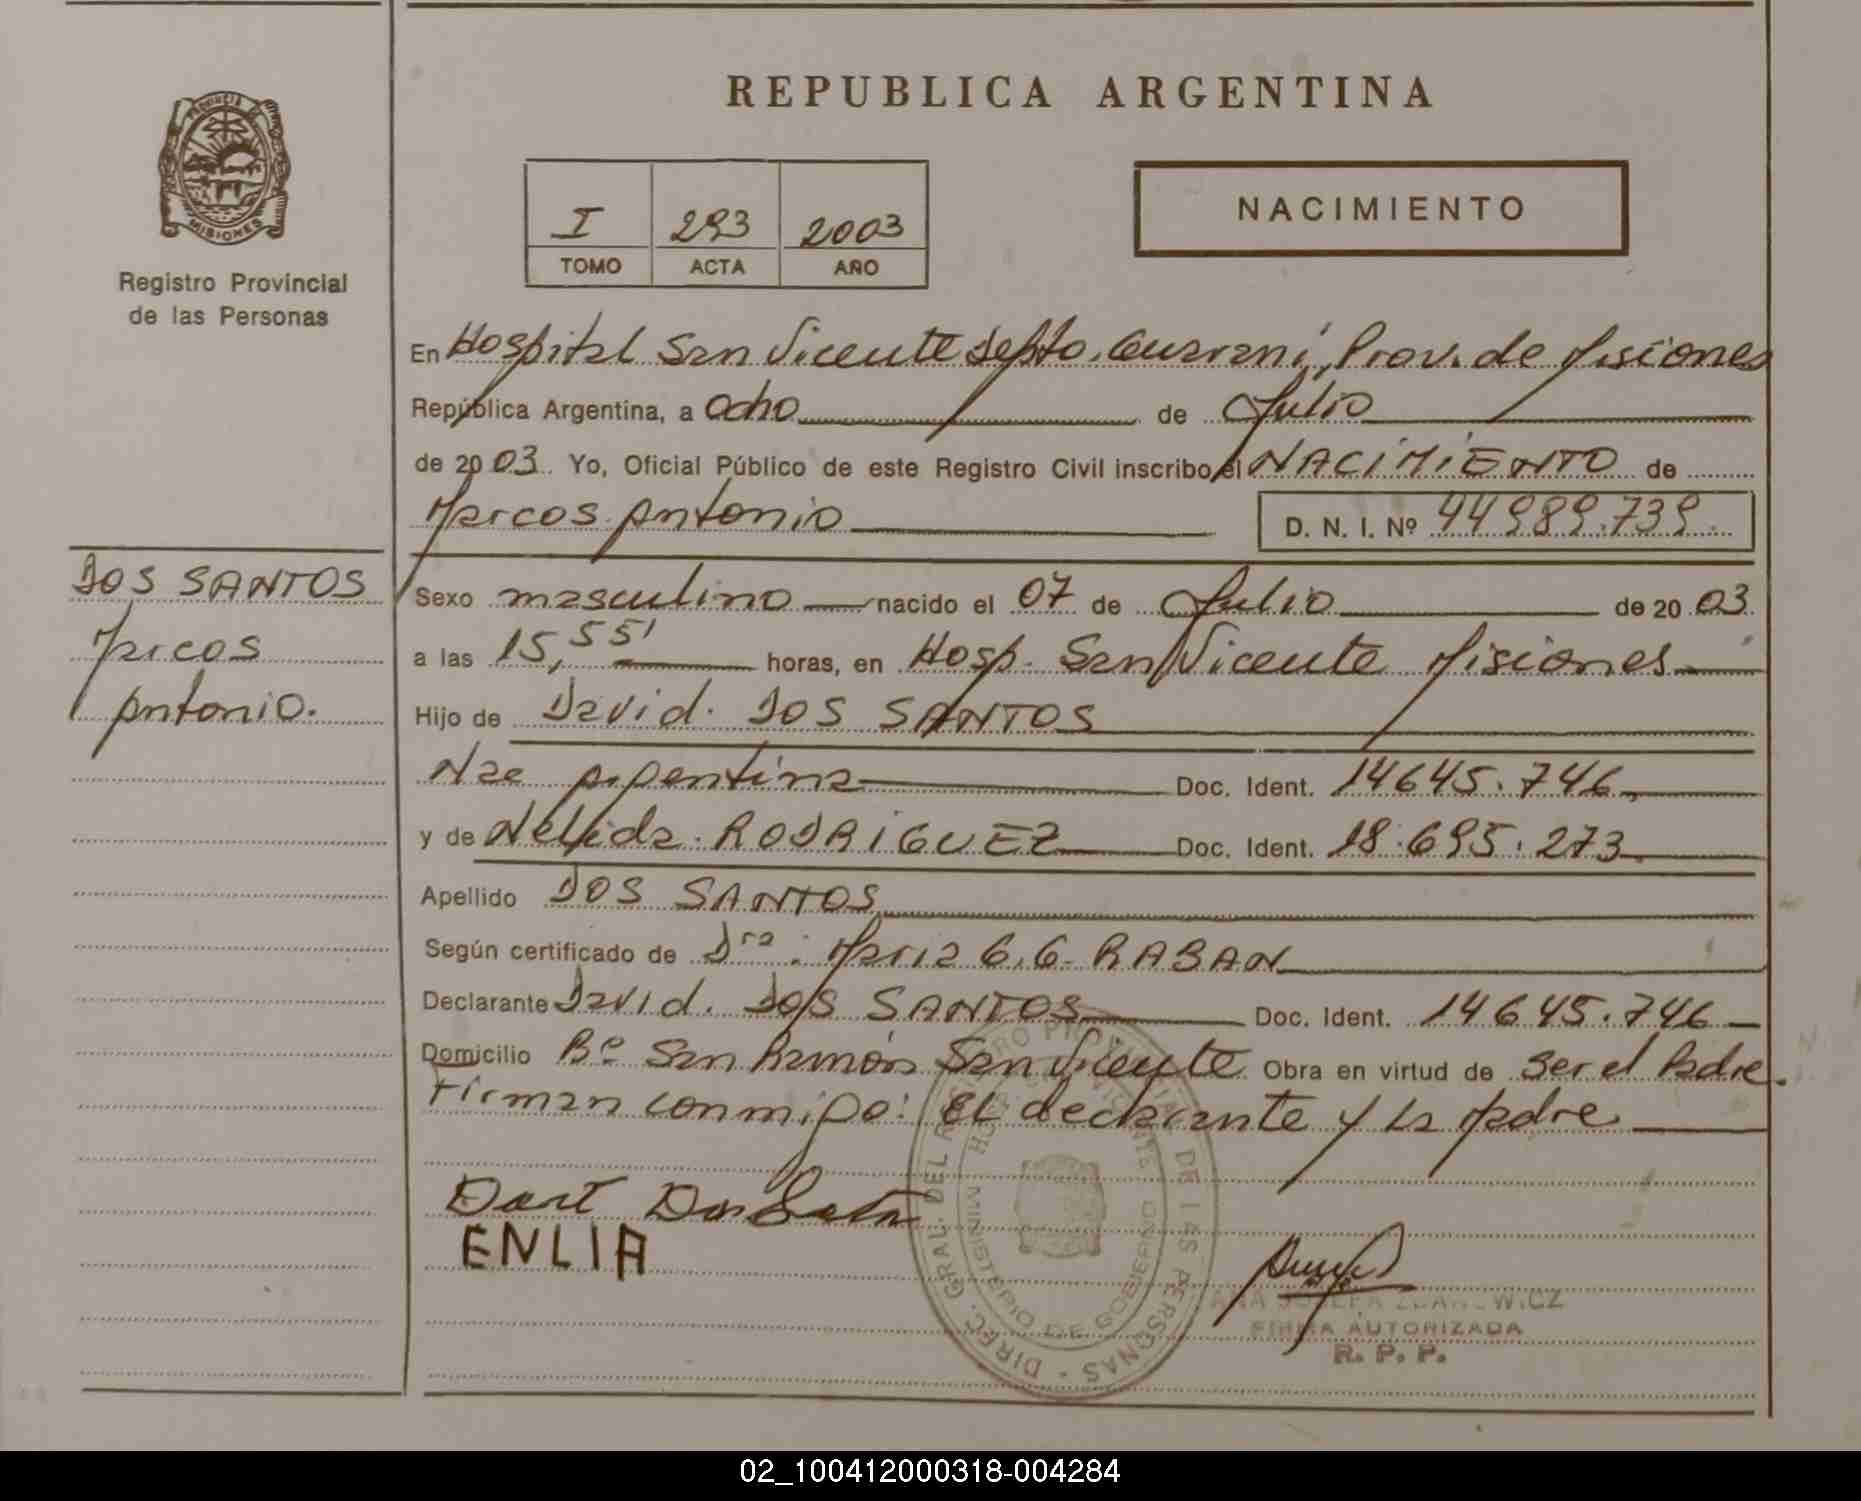 REPUBLICA ARGENTINA
PROVINCIA DE
MISIONES
Registro Provincial
de las Personas
I 293 2003
TOMO ACTA AÑO
NACIMIENTO
En Hospital San Vicente depto. Guaraní, Prov. de Misiones
República Argentina, a ocho de Julio
de 2003. Yo, Oficial Público de este Registro Civil inscribo el NACIMIENTO de
Marcos Antonio
D. N. I. Nº 44989.739
DOS SANTOS
Marcos
Antonio.
Sexo masculino nacido el 07 de Julio de 2003
a las 15,55' horas, en Hosp. San Vicente Misiones
Hijo de David. DOS SANTOS
Nac Argentina Doc. Ident. 14645.746
y de Nelida. RODRIGUEZ Doc. Ident. 18.695.273
Apellido DOS SANTOS
Según certificado de Dra. Maria G.G. RABAN
Declarante David. DOS SANTOS Doc. Ident. 14645.746
Domicilio Bº San Ramón San Vicente Obra en virtud de ser el Padre.
Firman conmigo: El declarante y la Madre
ENLIA
DIREC. GRAL. DEL REGISTRO PROVINCIAL DE LAS PERSONAS
MINISTERIO DE GOBIERNO
FIRMA AUTORIZADA
R. P. P.
02_100412000318-004284